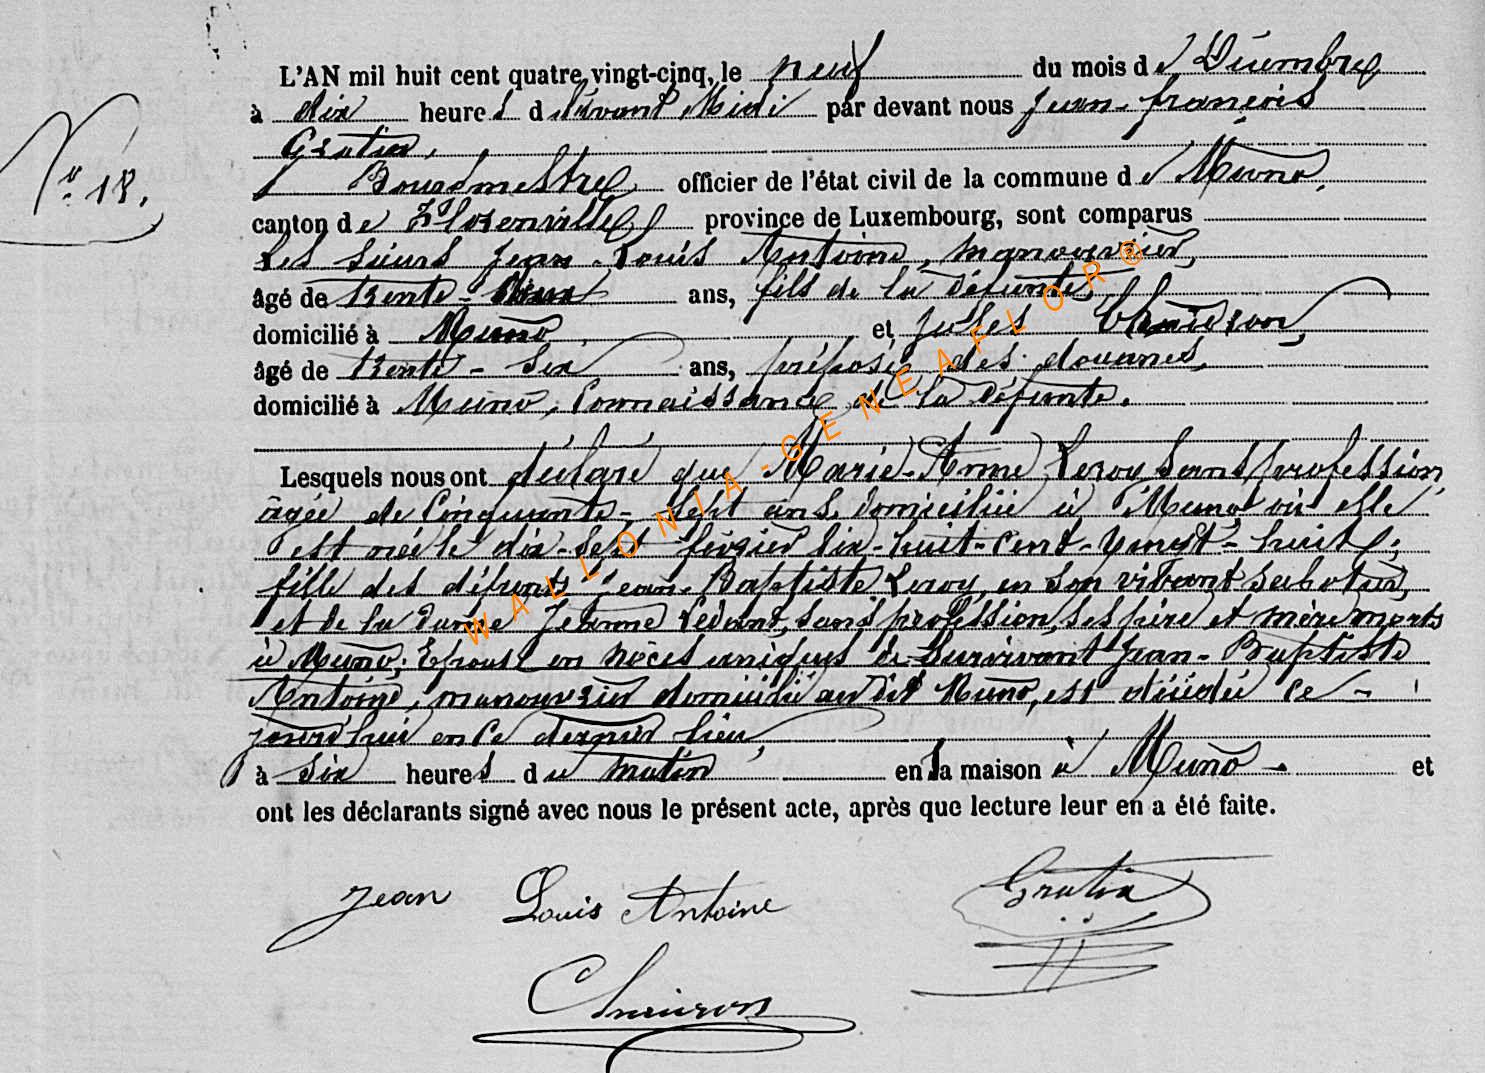 L'AN mil huit cent quatre vingt-cinq, le neuf du mois de Décembre
à dix heures d avant Midi par devant nous Jean-françois
Gratia,
Bourgmestre officier de l'état civil de la commune de Muno,
canton de Florenville, province de Luxembourg, sont comparus
Les sieurs Jean-Louis Antoine, manouvrier,
âgé de trente-deux ans, fils de la défunte,
domicilié à Muno, et Jules
âgé de trente-six ans, préposé des douanes,
domicilié à Muno, Connaissance de la défunte.
N° 18.
Lesquels nous ont déclaré que Marie-Anne Leroy sans profession
âgée de Cinquante-sept ans, domiciliée à Muno où elle
est née le dix-sept février dix-huit-cent-vingt-huit,
fille des défunts Jean-Baptiste Leroy, en son vivant sabotier,
et de la dame Jeanne Lédant, sans profession, ses père et mère morts
à Muno; Epouse en nôces uniques de survivant Jean-Baptiste
Antoine, manouvrier domicilié au dit Muno, est décédée ce-
jourd'hui en ce dernier lieu,
à six heures du matin en la maison à Muno - et
ont les déclarants signé avec nous le présent acte, après que lecture leur en a été faite.
Jean Louis Antoine Gratia
WALLONIA-GENEAFLOR®